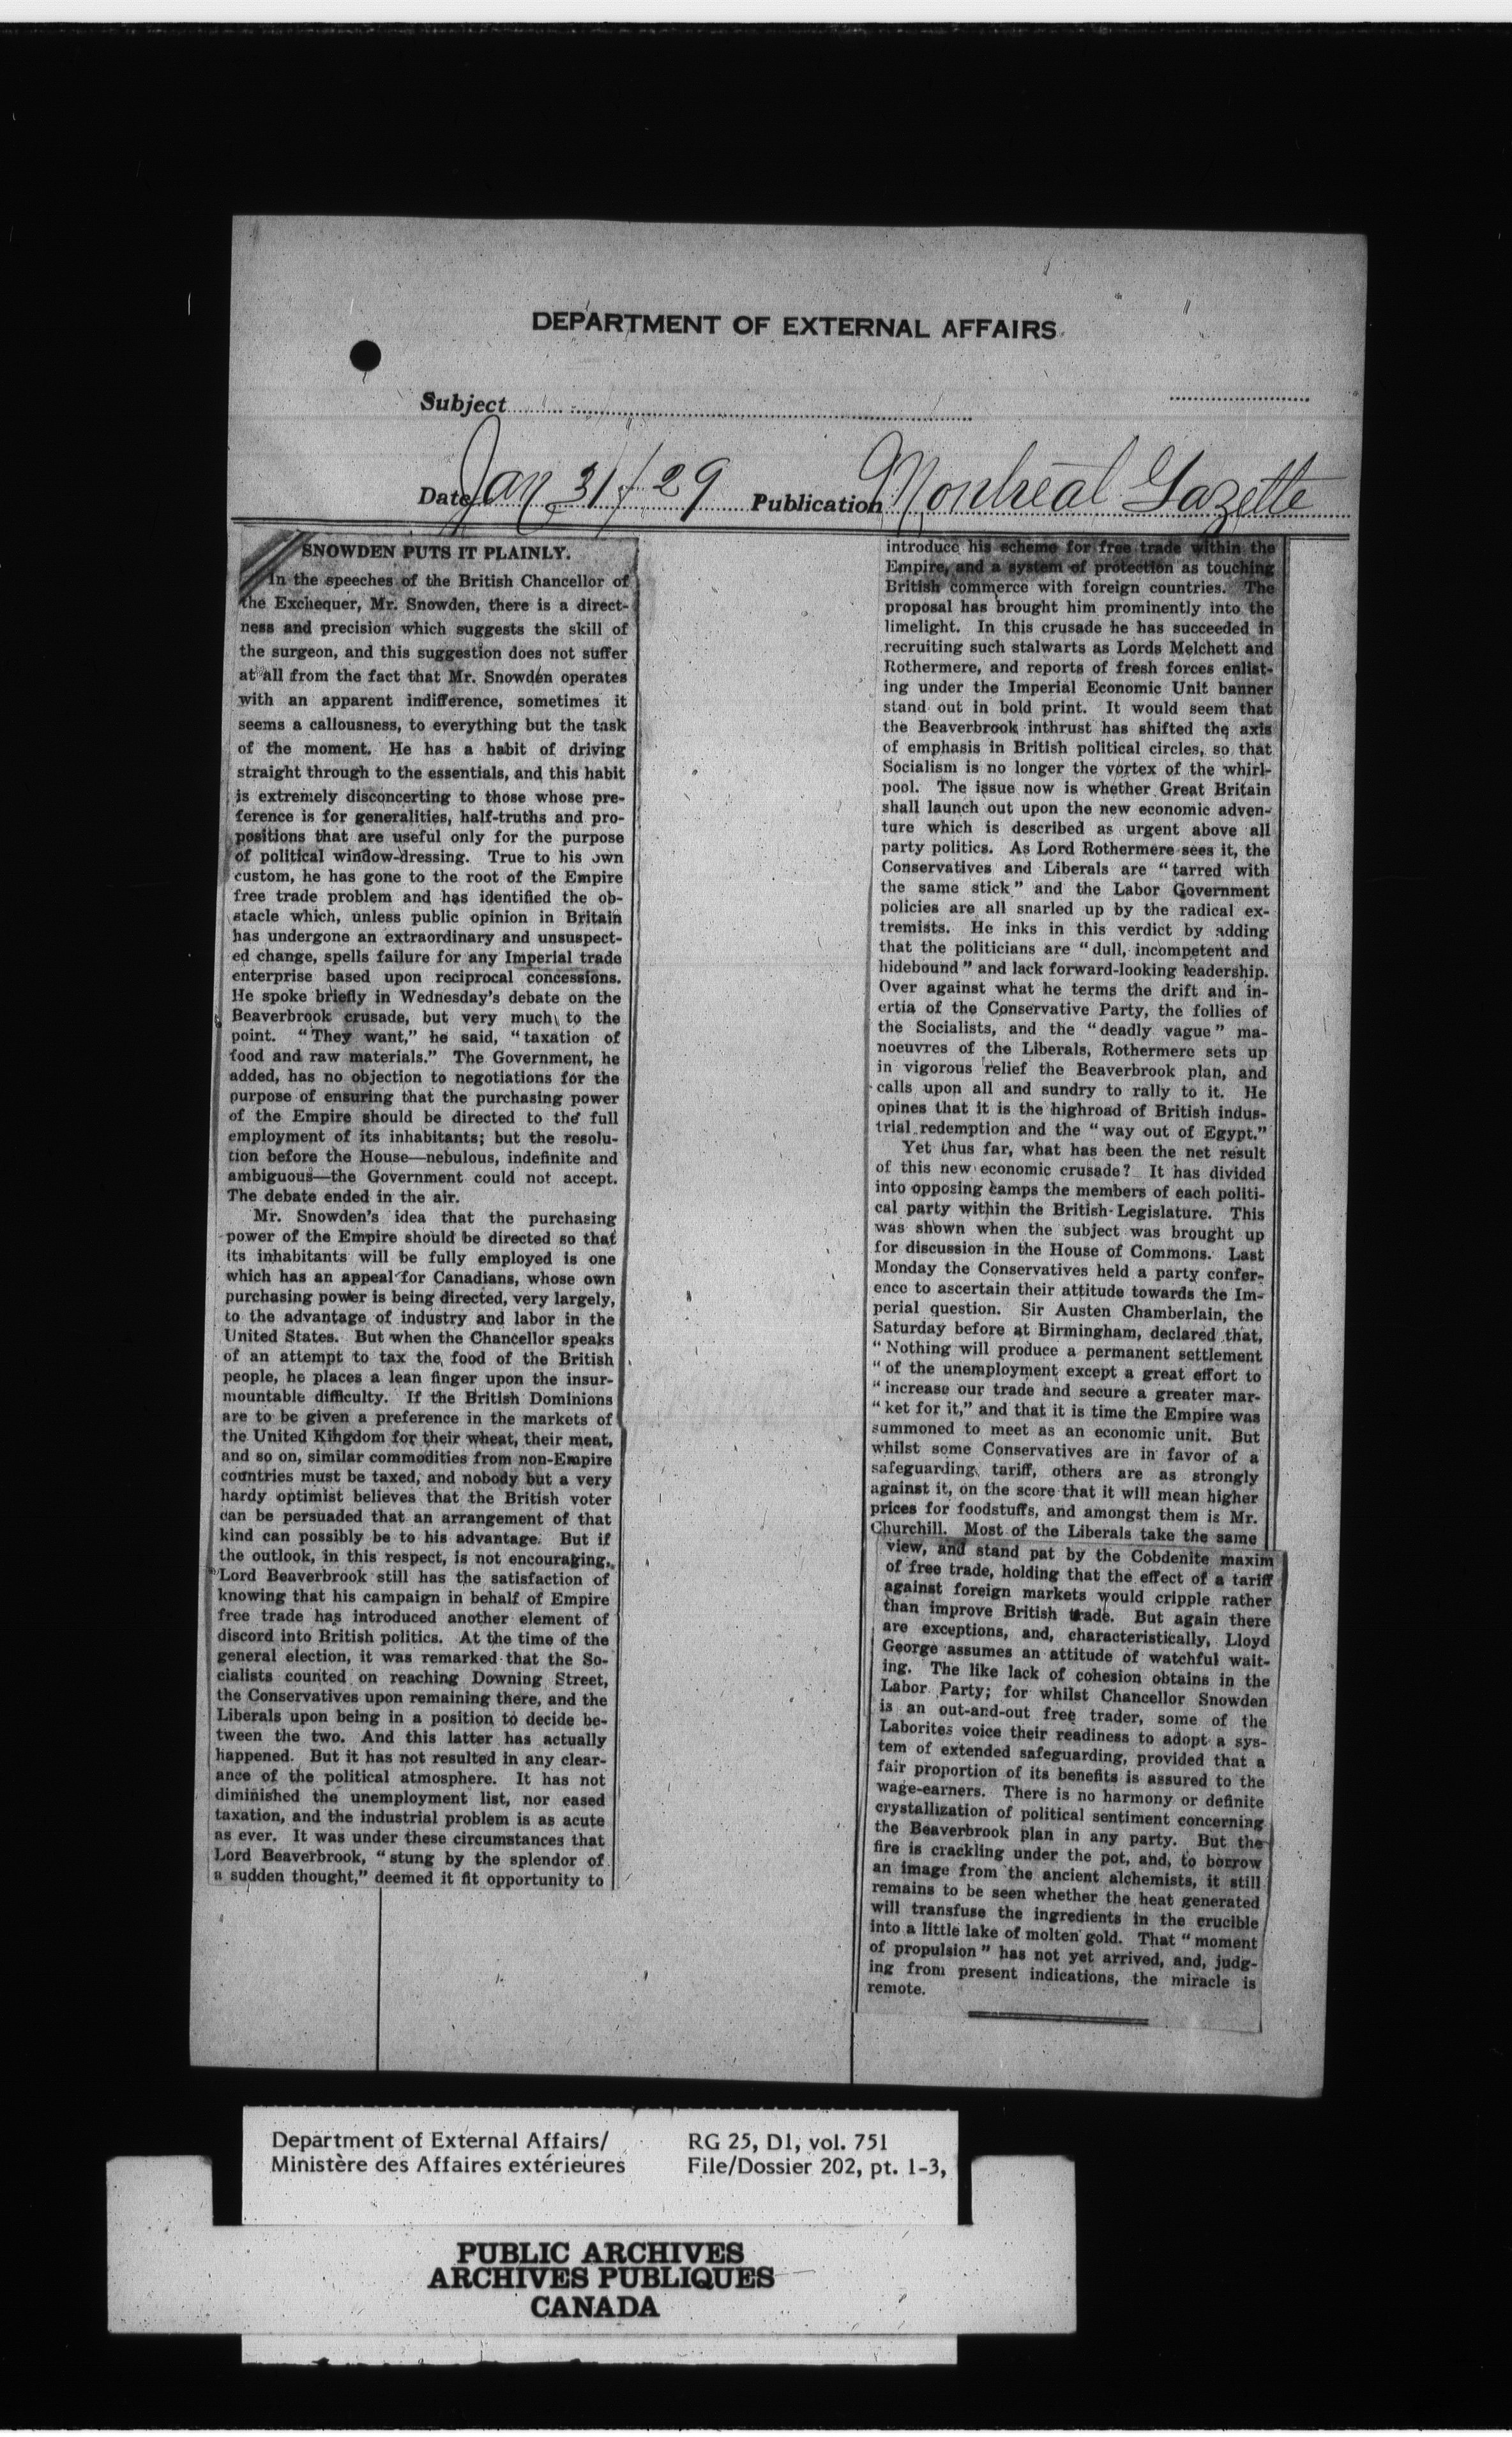 DEPARTMENT OF EXTERNAL AFFAIRS
Subject
Date Jan 31/29 Publication Montreal Gazette
SNOWDEN PUTS IT PLAINLY.
In the speeches of the British Chancellor of
the Exchequer, Mr. Snowden, there is a direct-
ness and precision which suggests the skill of
the surgeon, and this suggestion does not suffer
at all from the fact that Mr. Snowden operates
with an apparent indifference, sometimes it
seems a callousness, to everything but the task
of the moment. He has a habit of driving
straight through to the essentials, and this habit
is extremely disconcerting to those whose pre-
ference is for generalities, half-truths and pro-
positions that are useful only for the purpose
of political window-dressing. True to his own
custom, he has gone to the root of the Empire
free trade problem and has identified the ob-
stacle which, unless public opinion in Britain
has undergone an extraordinary and unsuspect-
ed change, spells failure for any Imperial trade
enterprise based upon reciprocal concessions.
He spoke briefly in Wednesday's debate on the
Beaverbrook crusade, but very much to the
point. "They want," he said, "taxation of
food and raw materials." The Government, he
added, has no objection to negotiations for the
purpose of ensuring that the purchasing power
of the Empire should be directed to the full
employment of its inhabitants; but the resolu-
tion before the House—nebulous, indefinite and
ambiguous—the Government could not accept.
The debate ended in the air.
Mr. Snowden's idea that the purchasing
power of the Empire should be directed so that
its inhabitants will be fully employed is one
which has an appeal for Canadians, whose own
purchasing power is being directed, very largely,
to the advantage of industry and labor in the
United States. But when the Chancellor speaks
of an attempt to tax the food of the British
people, he places a lean finger upon the insur-
mountable difficulty. If the British Dominions
are to be given a preference in the markets of
the United Kingdom for their wheat, their meat,
and so on, similar commodities from non-Empire
countries must be taxed, and nobody but a very
hardy optimist believes that the British voter
can be persuaded that an arrangement of that
kind can possibly be to his advantage. But if
the outlook, in this respect, is not encouraging,
Lord Beaverbrook still has the satisfaction of
knowing that his campaign in behalf of Empire
free trade has introduced another element of
discord into British politics. At the time of the
general election, it was remarked that the So-
cialists counted on reaching Downing Street,
the Conservatives upon remaining there, and the
Liberals upon being in a position to decide be-
tween the two. And this latter has actually
happened. But it has not resulted in any clear-
ance of the political atmosphere. It has not
diminished the unemployment list, nor eased
taxation, and the industrial problem is as acute
as ever. It was under these circumstances that
Lord Beaverbrook, "stung by the splendor of
a sudden thought," deemed it fit opportunity to
introduce his scheme for free trade within the
Empire, and a system of protection as touching
British commerce with foreign countries. The
proposal has brought him prominently into the
limelight. In this crusade he has succeeded in
recruiting such stalwarts as Lords Melchett and
Rothermere, and reports of fresh forces enlist-
ing under the Imperial Economic Unit banner
stand out in bold print. It would seem that
the Beaverbrook inthrust has shifted the axis
of emphasis in British political circles, so that
Socialism is no longer the vortex of the whirl-
pool. The issue now is whether Great Britain
shall launch out upon the new economic adven-
ture which is described as urgent above all
party politics. As Lord Rothermere sees it, the
Conservatives and Liberals are "tarred with
the same stick" and the Labor Government
policies are all snarled up by the radical ex-
tremists. He inks in this verdict by adding
that the politicians are "dull, incompetent and
hidebound" and lack forward-looking leadership.
Over against what he terms the drift and in-
ertia of the Conservative Party, the follies of
the Socialists, and the "deadly vague" ma-
noeuvres of the Liberals, Rothermere sets up
in vigorous relief the Beaverbrook plan, and
calls upon all and sundry to rally to it. He
opines that it is the highroad of British indus-
trial redemption and the "way out of Egypt."
Yet thus far, what has been the net result
of this new economic crusade? It has divided
into opposing camps the members of each politi-
cal party within the British Legislature. This
was shown when the subject was brought up
for discussion in the House of Commons. Last
Monday the Conservatives held a party confer-
ence to ascertain their attitude towards the Im-
perial question. Sir Austen Chamberlain, the
Saturday before at Birmingham, declared that,
"Nothing will produce a permanent settlement
"of the unemployment except a great effort to
"increase our trade and secure a greater mar-
"ket for it," and that it is time the Empire was
summoned to meet as an economic unit. But
whilst some Conservatives are in favor of a
safeguarding tariff, others are as strongly
against it, on the score that it will mean higher
prices for foodstuffs, and amongst them is Mr.
Churchill. Most of the Liberals take the same
view, and stand pat by the Cobdenite maxim
of free trade, holding that the effect of a tariff
against foreign markets would cripple rather
than improve British trade. But again there
are exceptions, and, characteristically, Lloyd
George assumes an attitude of watchful wait-
ing. The like lack of cohesion obtains in the
Labor Party; for whilst Chancellor Snowden
is an out-and-out free trader, some of the
Laborites voice their readiness to adopt a sys-
tem of extended safeguarding, provided that a
fair proportion of its benefits is assured to the
wage-earners. There is no harmony or definite
crystallization of political sentiment concerning
the Beaverbrook plan in any party. But the
fire is crackling under the pot, and, to borrow
an image from the ancient alchemists, it still
remains to be seen whether the heat generated
will transfuse the ingredients in the crucible
into a little lake of molten gold. That "moment
of propulsion" has not yet arrived, and, judg-
ing from present indications, the miracle is
remote.
Department of External Affairs/ RG 25, D1, vol. 751
Ministère des Affaires extérieures File/Dossier 202, pt. 1-3,
PUBLIC ARCHIVES
ARCHIVES PUBLIQUES
CANADA